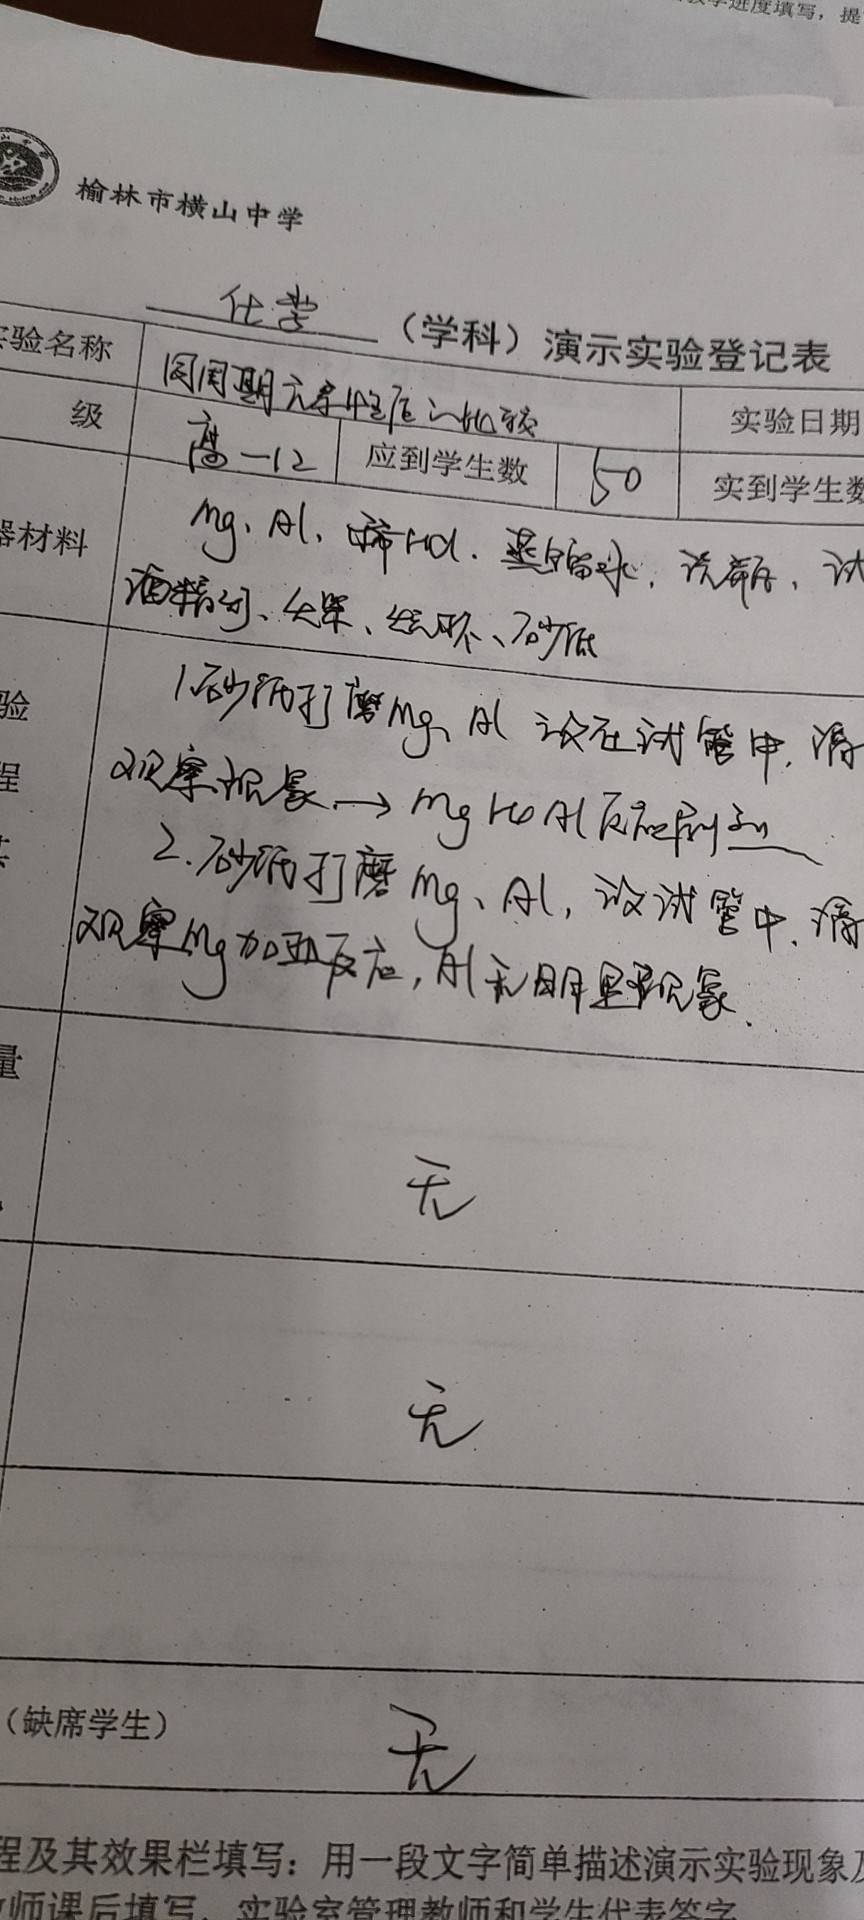 进度填写，提
榆林市横山中学
化学（学科）演示实验登记表
实验名称 同周期元素性质的比较 实验日期
级 高一12 应到学生数 50 实到学生数
器材料 Mg、Al、稀HCl、蒸馏水、洗瓶、试
酒精灯、火柴、烧杯、砂纸
1.砂纸打磨Mg、Al 放在试管中，滴
验
观察现象→Mg比Al反应剧烈
程
2.砂纸打磨Mg、Al，放试管中，滴
其
观察Mg加热反应，Al无明显现象．
量
无
无
（缺席学生） 无
程及其效果栏填写：用一段文字简单描述演示实验现象及
师课后填写，实验室管理教师和学生代表签字